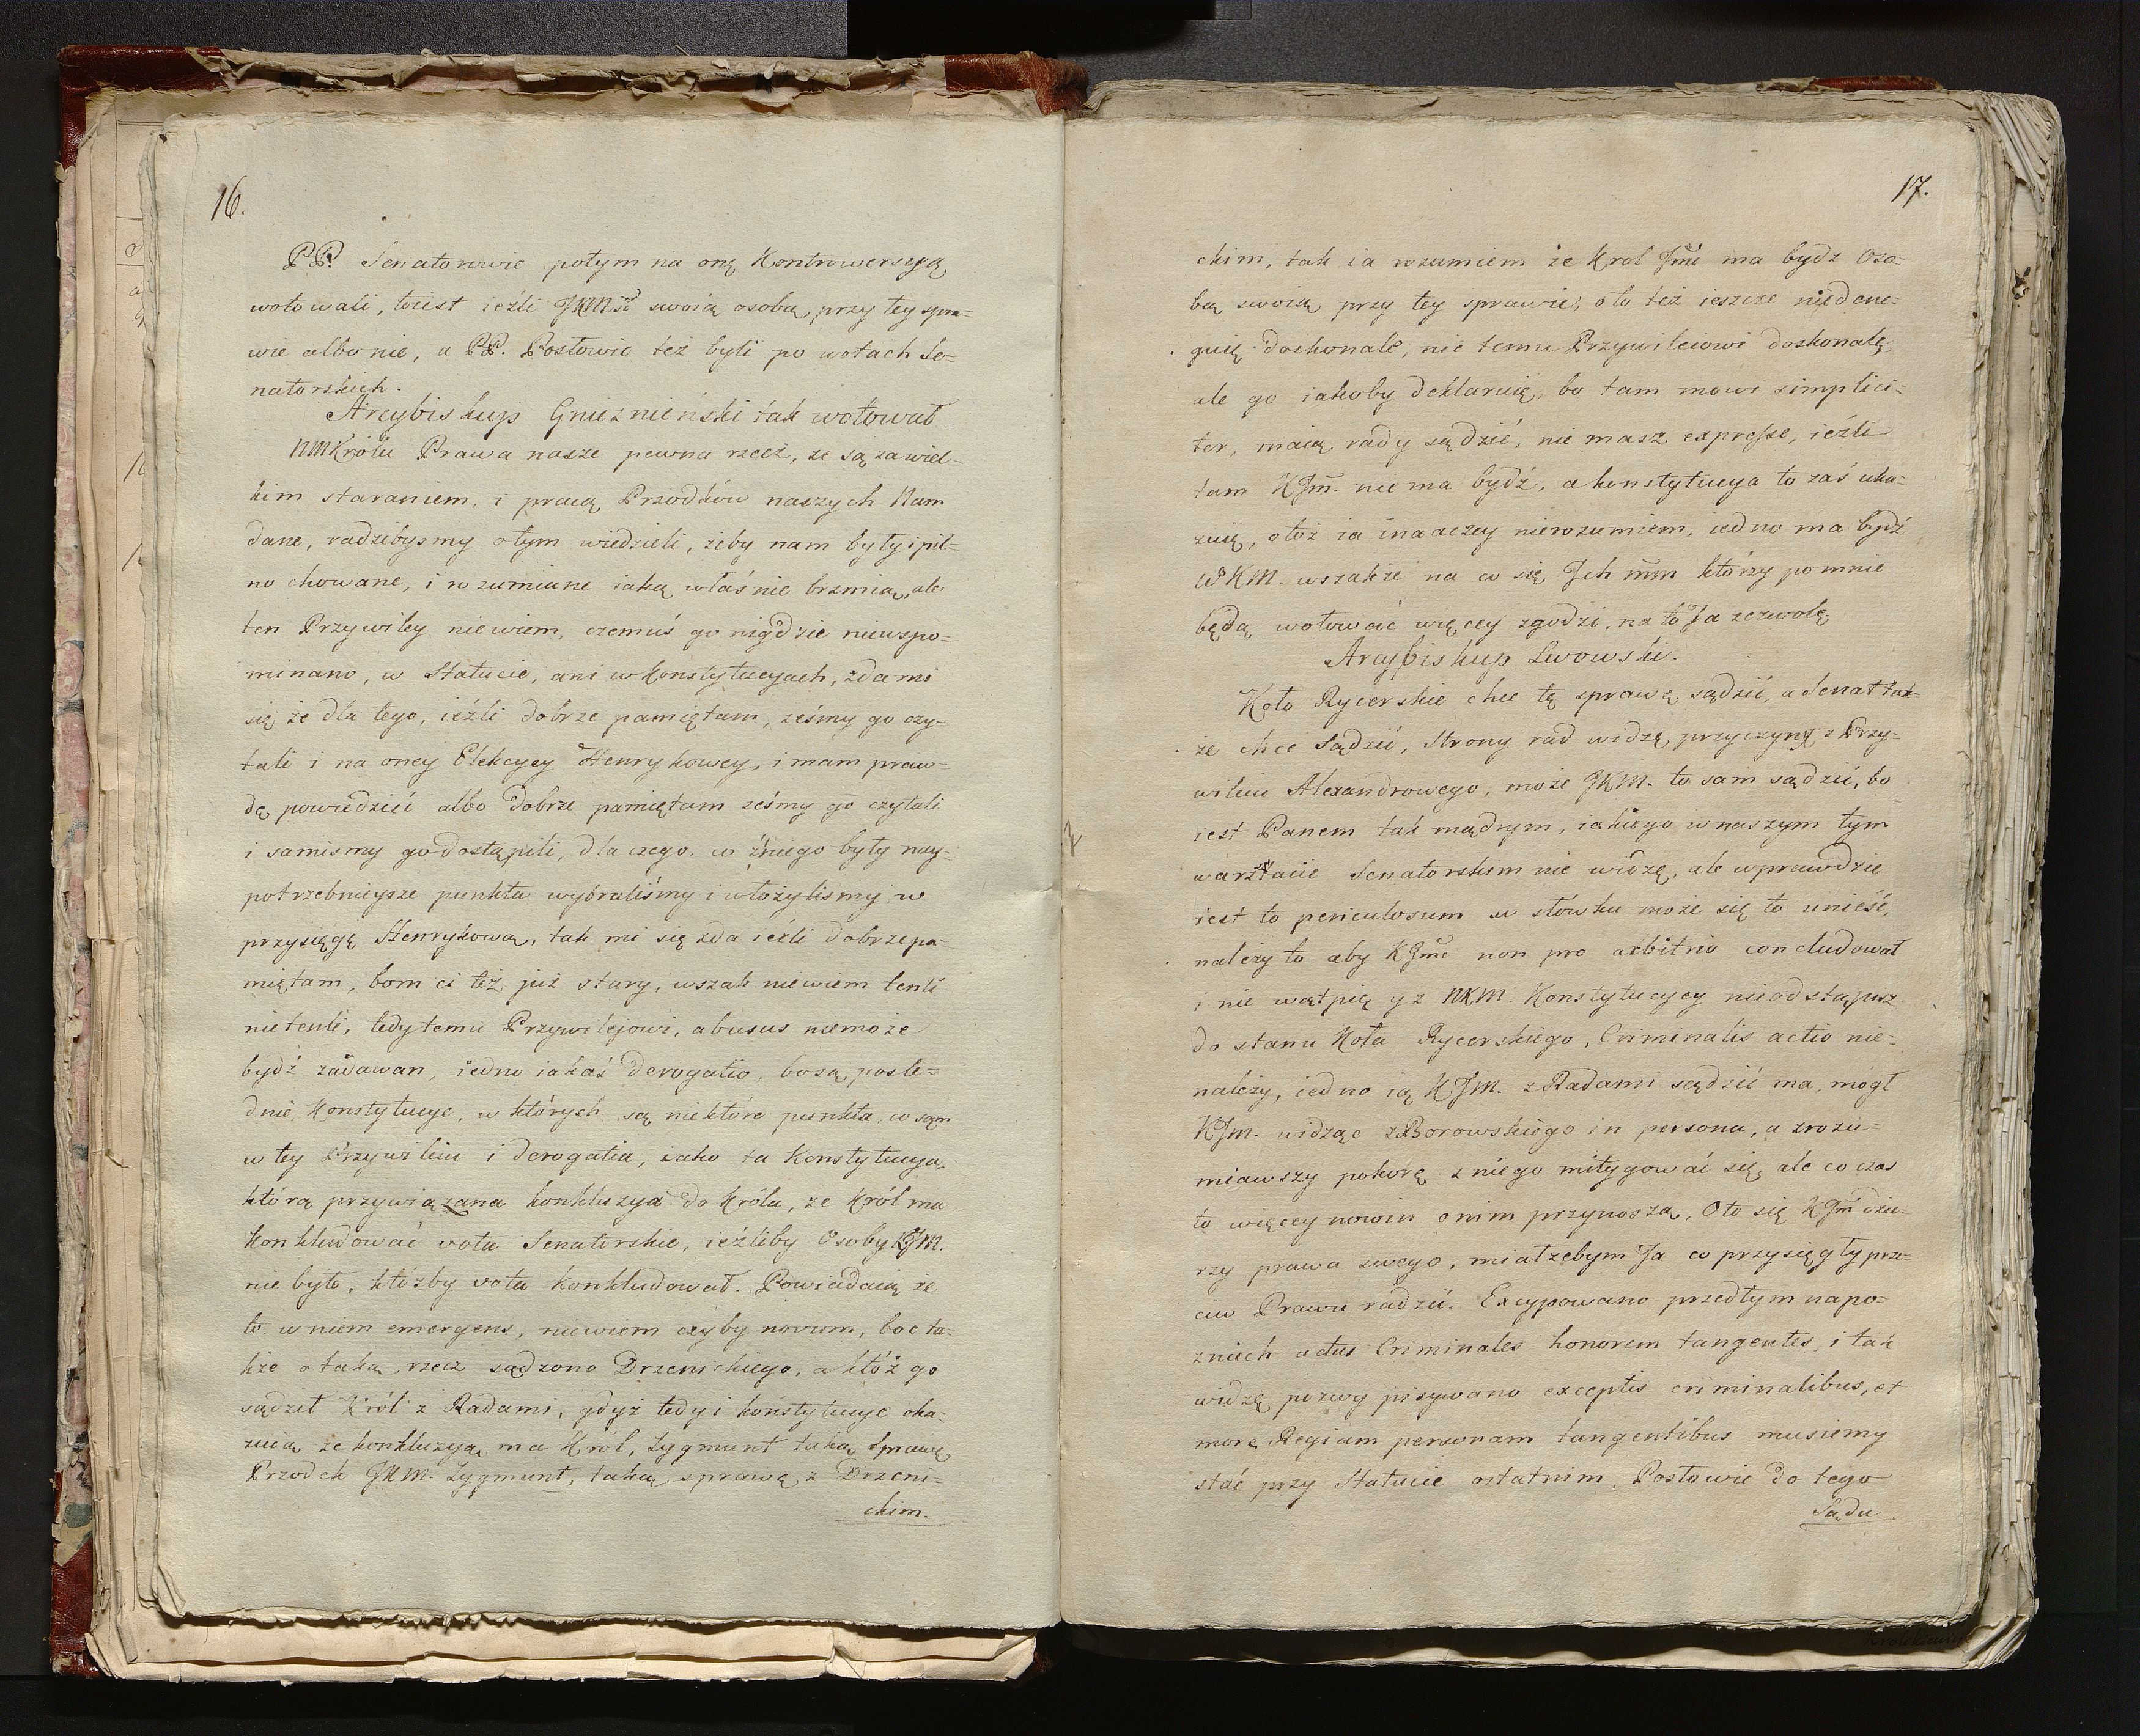 16.
PP. Senatorowie potym na oną Kontrowersyą
wotowali, toiest ieźli JKMść swoią osobą przy tey spra-
wie albo nie, a PP. Posłowie też byli po wotach Se-
natorskich.
Arcybiskup Gnieznieński tak wotował
NMKrólu Prawa nasze pewna rzecz, ze są za wiel-
kim staraniem, i pracą Przodków naszych Nam
dane, radzibysmy o tym wiedzieli, żeby nam były i pil-
no chowane, i rozumiane iaką właśnie brzmią, ale
ten Przywiley niewiem, czemuś go nigdzie niewspo-
minano, w Statucie, ani w Konstytucyach, zda mi
się że dla tego, ieźli dobrze pamiętam, ześmy go czy-
tali i na oney Elekcyey Henrykowey, i mam praw-
dę powiedzieć albo dobrze pamiętam ześmy go czytali
i samismy go dostąpili, dla czego, co źniego były nay-
potrzebnieysze punkta wybraliśmy i włożylismy w
przysięgę Henrykową, tak mi się zda ieźli dobrze pa-
miętam, bom ci też już stary, wszak niewiem tenli
nie tenli, tedy temu Przywilejowi, abusus niemoże
bydź zadawan, iedno iakaś derogatio, bo są posle-
dnie Konstytucye, w których są niektóre punkta, co sąm
w tey Przywileiu i derogatia, iako ta Konstytucya,
którą przywiązana konkluzya do Króla, ze Król ma
Konkludować vota Senatorskie, ieźliby Osoby KJM.
nie było, któżby vota Konkludował. Powiadaią że
to w niem emergens, niewiem czyby novum, boc ta-
kże o taką rzecz sądzono Drzenickiego, a któż go
sądził Król z Radami, gdyż tedy i konstytucye oka-
zuią że konkluzyą ma Krol, Zygmunt taką Sprawę
Przodek JKM. Zygmunt, taką sprawą z Drzeni-
ckim.
17.
ckim, tak ia rozumiem że Krol Jmć ma bydz Oso-
bą swoią przy tey sprawie, oto też ieszcze niedene-
guię doskonale, nie temu Przywileiowi doskonalę,
ale go iakoby deklaruię, bo tam mowi simplici-
ter, maią rady sądzić, nie masz expresse, ieźli
tam KJm. nie ma bydź, a konstytucya to zaś uka-
zuię, otoż ia inaaczey nierozumiem, iedno ma bydź
WKM. wszakże na co się Ich mm którzy po mnie
będą wotować więcey zgodzi, na to Ja zezwolę
Arcybiskup Lwowski.
Koło Rycerskie chce tę sprawę sądzić, a Senat tak-
że chce Sądzić, Strony rad widzę przyczynę z Przy-
wileiu Alexandrowego, może JKM. to sam sądzić, bo
iest Panem tak mądrym, iakiego w naszym tym
warsztacie Senatorskim nie widzę, ale wprawdzie
iest to periculosum w słówku może się to unieść,
należy to aby KJmć non pro arbitrio concludował
i nie wątpię yz NKM. Konstytucyey nieodstąpisz
do stanu Koła Rycerskiego, Criminalis actio nie-
należy, iedno ią KJM. z Radami sądzić ma, mógł
KJm. widząc zBorowskiego in persona, a zrozu-
miawszy pokorę z niego mitygować się, ale co czas
to więcey nowin onim przynoszą, Oto się KJm dzie-
rzy prawa swego, miałzebym Ja co przysięgły prze-
ciw Prawu radzić. Excypowano przedtym napo-
zniech actus Criminales honorem tangentes, i tak
widzę pozwy pisywano exceptis criminalibus, et
more Regiam personam tangentibus musiemy
stać przy Statucie ostatnim. Posłowie do tego
Sądu